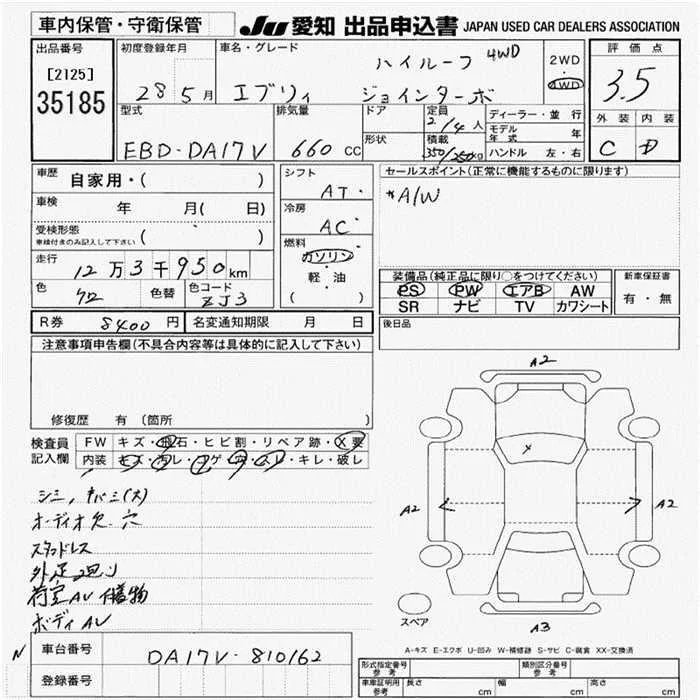 車内保管・守衛保管
JU 愛知 出品申込書 JAPAN USED CAR DEALERS ASSOCIATION
出品番号
[2125]
35185
初度登録年月
28 5月
車名・グレード
エブリィ
ハイルーフ 4WD
ジョインターボ
2WD
4WD
評価点
3.5
外装 内装
C D
型式
EBD-DA17V
排気量
660 CC
ドア
形状
定員
2/4人
積載
350/250kg
ディーラー・並行
モデル年式 年
ハンドル 左・右
車歴
自家用・( )
車検
年 月( 日)
受検形態
車検付きのみ記入して下さい
( )
走行
12万3千950km
色
色替
色コード
ZJ3
シフト
AT
冷房
AC
燃料
ガソリン
軽・油
( )
セールスポイント(正常に機能するものに限ります)
*A/W
装備品(純正品に限り○をつけてください)
PS PW エアB AW
SR ナビ TV カワシート
新車保証書
有・無
R券 8400円 名変通知期限 月 日
後日品
注意事項申告欄(不具合内容等は具体的に記入して下さい)
修復歴 有(箇所 )
検査員
記入欄
FW キズ・飛石・ヒビ割・リペア跡・X要
内装 キズ・汚レ・コゲ・穴・スレ・キレ・破レ
シミ、キバミ(大)
オーディオ欠 穴
スタッドレス
外足2廻り
荷室AV 積物
ボディAV
A2
A2
A2
A3
スペア
A-キズ E-エクボ U-凹み W-補修跡 S-サビ C-腐食 XX-交換済
N
車台番号 DA17V-810162
登録番号
形式指定番号
参考
類別区分番号
参考
車庫証明用
参考
長さ cm 幅 cm 高さ cm